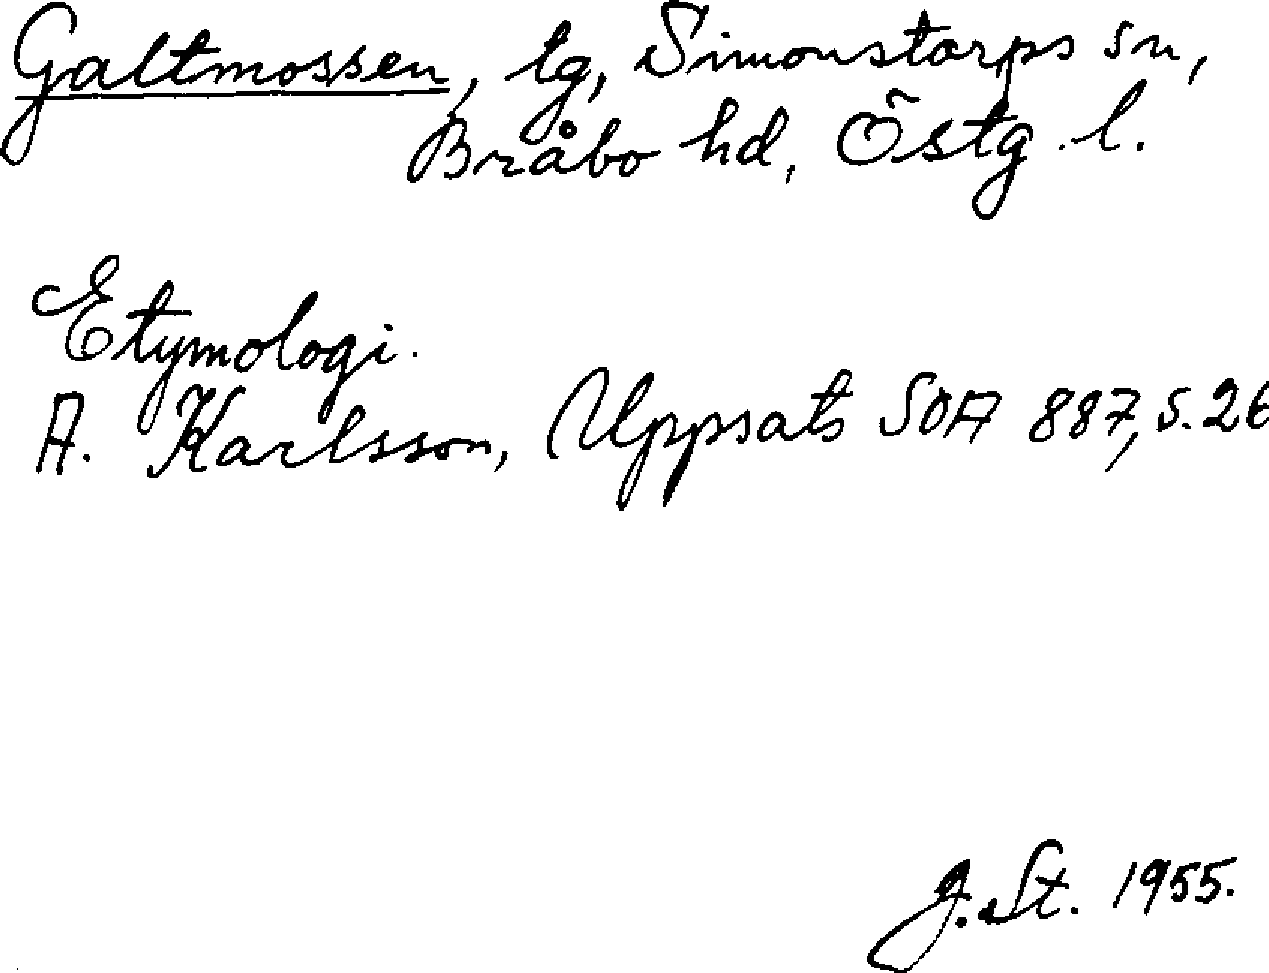 Galtmossen, tg, Simonstorps sn,
Bråbo hd, Östg. l.
Etymologi.
A. Karlsson, Uppsats SOA 887, s. 26
G. St. 1955.